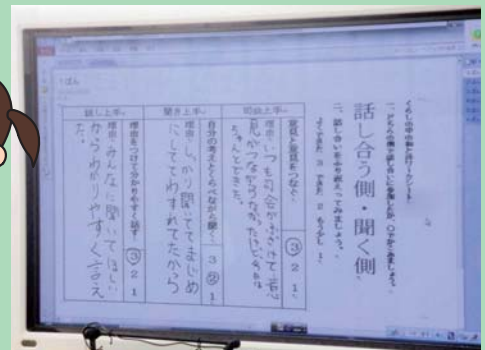 一、どちらの側で話し合いに参加したか、○でかこみましょう。
話し合う側・聞く側
二、話し合いをふり返ってみましょう。
よくできた 3 できた 2 もう少し 1
司会上手
意見と意見をつなぐ。
3 2 1
理由 いつも司会がふざけて意
見がつながらなかったけど、今日は
ちゃんとできた。
聞き上手
自分の考えとくらべながら聞く。
3 2 1
理由 しっかり聞いててまじめ
にしててわすれてたから
話し上手
理由をつけて分かりやすく話す
3 2 1
理由 みんなに聞いてほしい
からわかりやすく言え
た。